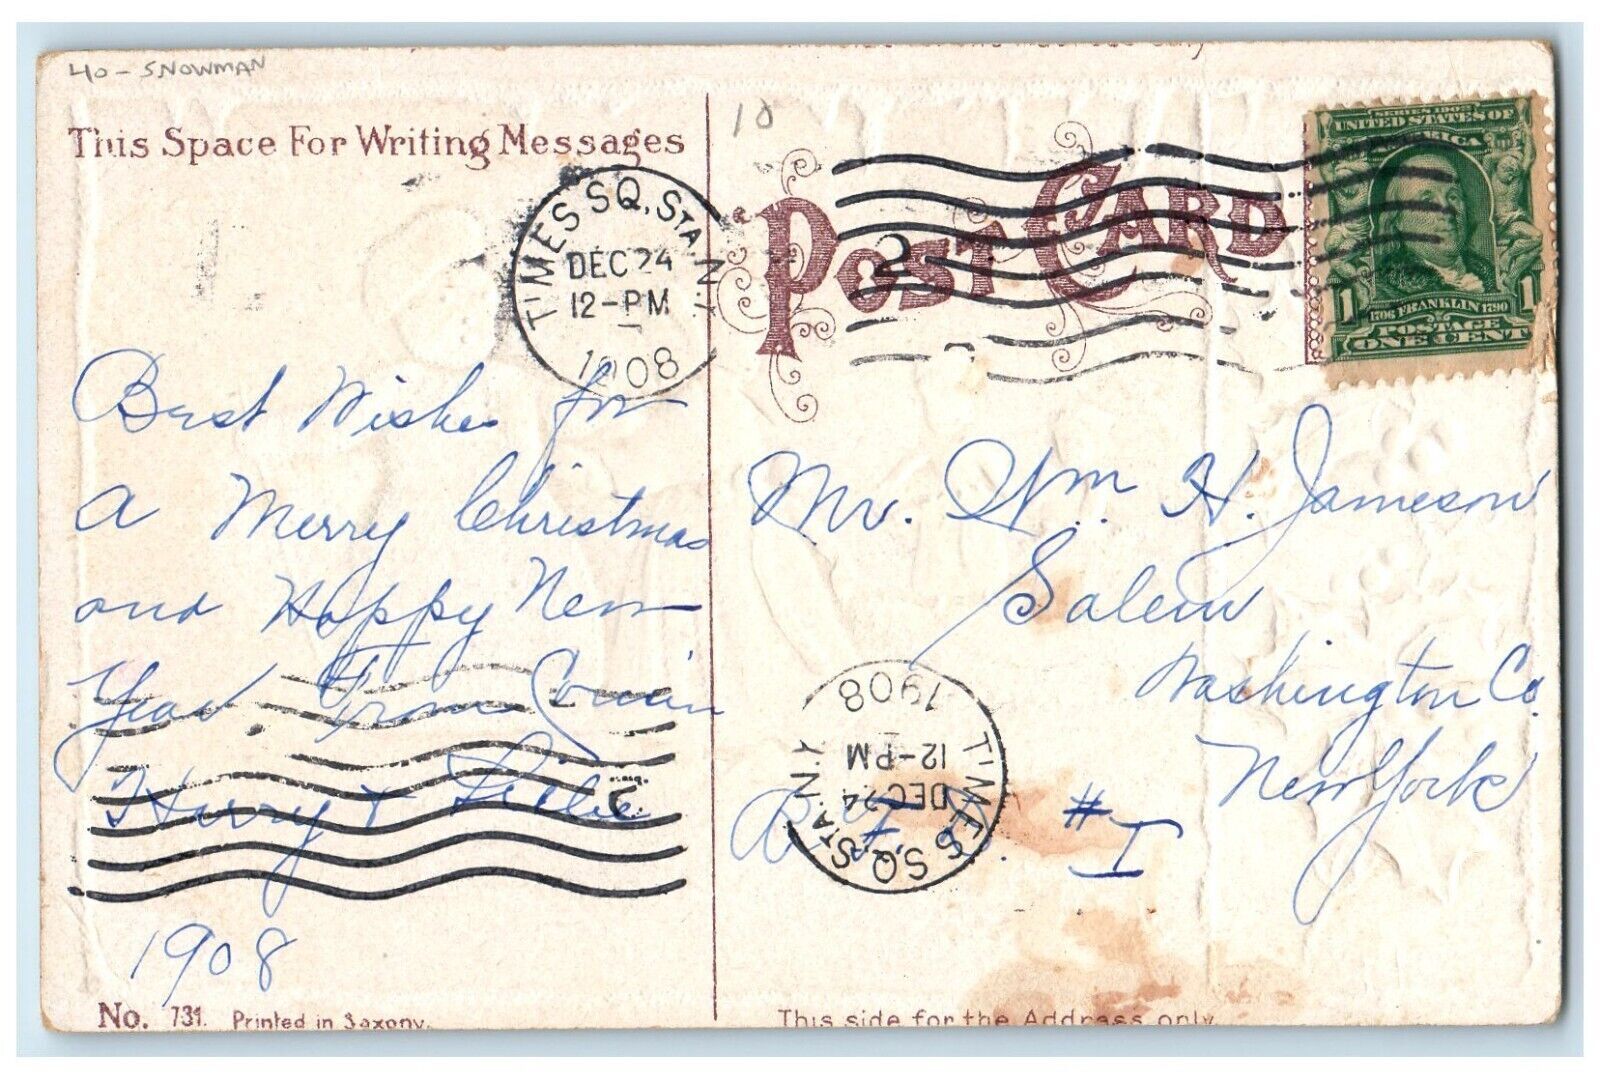 40 - SNOWMAN
10
This Space For Writing Messages
POST CARD
TIMES SQ. STA. N.Y.
DEC 24
12-PM
1908
2
SERIES 1902
UNITED STATES OF
AMERICA
1706 FRANKLIN 1790
POSTAGE
1 ONE CENT 1
Best Wishes for
A Merry Christmas
and Happy New
Year From Cousin
Harry +
1908
Mr. Wm. H. Jameson
Salem
Washington Co.
New York
#1
TIMES SQ. STA. N.Y.
DEC 24
12-PM
1908
2
No. 731. Printed in Saxony.
This side for the Address only